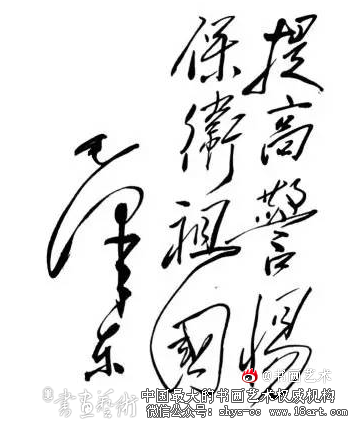 提高警惕
保衛祖國
毛泽东
@书画艺术
書画藝術
中国最大的书画艺术权威机构
微信公众号: shys-cc www.18art.com